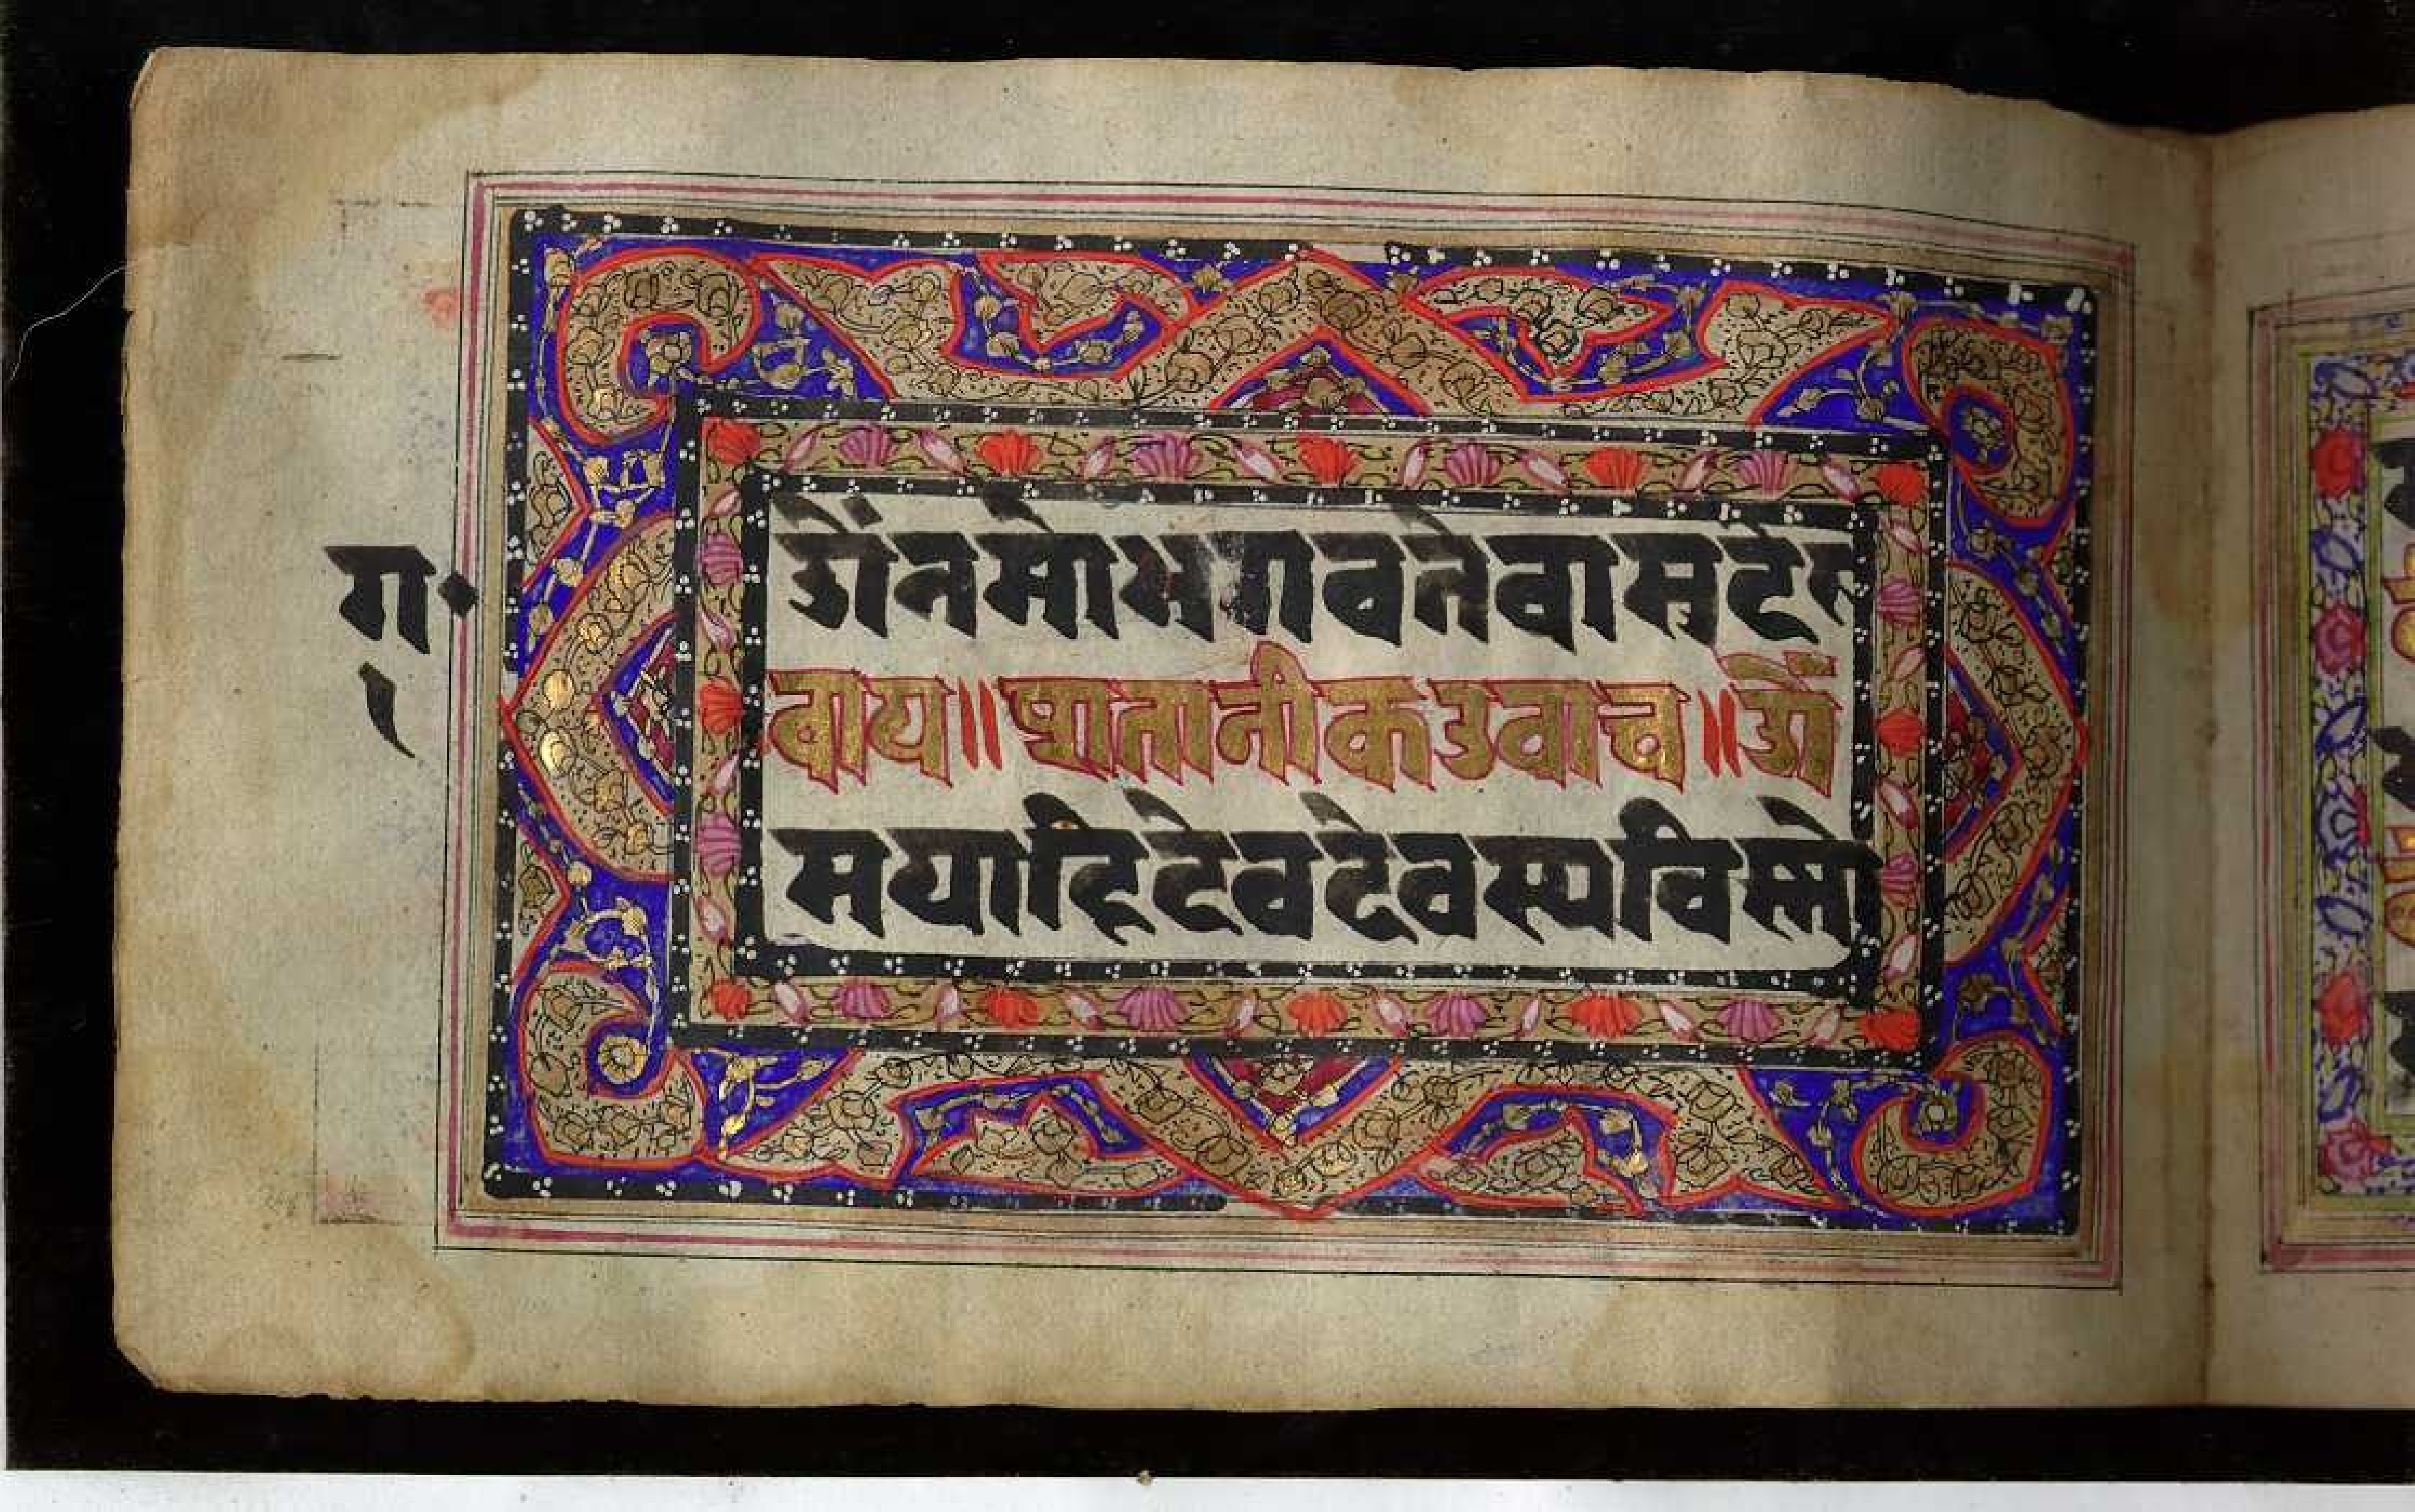 ग॰
१
ओंनमोभगवतेवासुदे
वाय॥शतानीकउवाच॥ओं
मयाहिदेवदेवस्यविस्नो